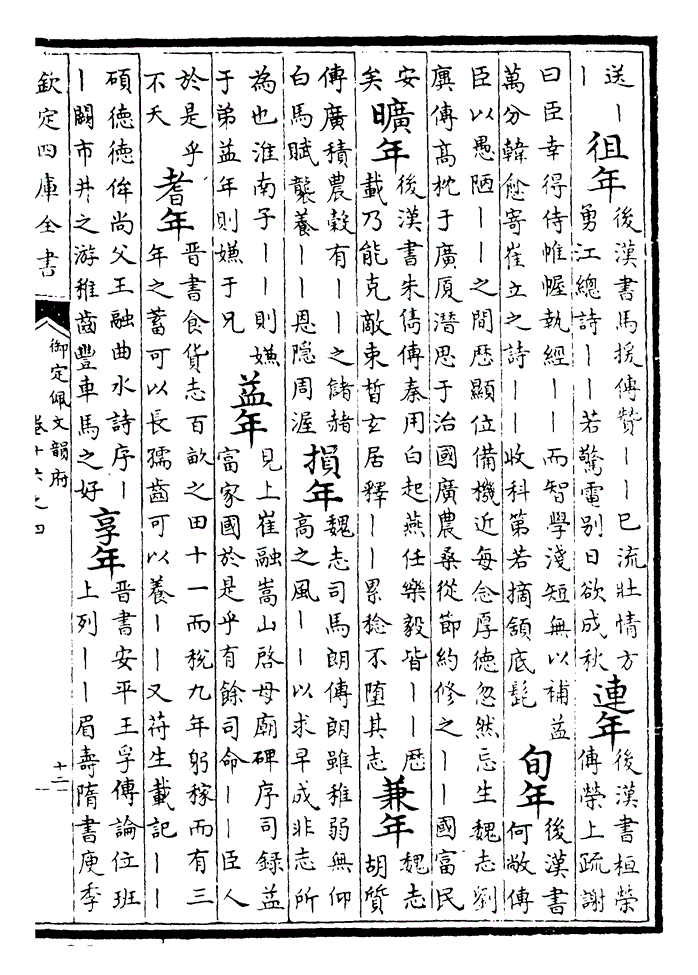 送丨
丨
徂年
後漢書馬援傳贊丨丨已流壯情方
勇江總詩丨丨若驚電別日欲成秋
連年
後漢書桓榮
傳榮上疏謝
曰臣幸得侍帷幄執經丨丨而智學淺短無以補益
萬分韓愈寄崔立之詩丨丨收科第若摘頷底髭
旬年
後漢書
何敞傳
臣以愚陋丨丨之間歴顯位備機近每念厚德忽然忘生魏志劉
廙傳高枕于廣厦潛思于治國廣農桑從節約修之丨丨國富民
安
矣
曠年
後漢書朱儁傳秦用白起燕任樂毅皆丨丨歴
載乃能克敵束晳玄居釋丨丨累稔不墮其志
兼年
魏志
胡質
傳廣積農穀有丨丨之儲赭
白馬賦襲養丨丨恩隱周渥
損年
魏志司馬朗傳朗雖稚弱無仰
高之風丨丨以求早成非志所
為也淮南子丨丨則嫌
于弟益年則嫌于兄
益年
見上崔融嵩山啓母廟碑序司録益
富家國於是乎有餘司命丨丨臣人
於是乎
不夭
耆年
晋書食貨志百畝之田十一而稅九年躬稼而有三
年之蓄可以長孺齒可以養丨丨又苻生載記丨丨
碩德德侔尚父王融曲水詩序丨
丨闤市井之游稚齒豐車馬之好
享年
晋書安平王孚傳論位班
上列丨丨眉壽隋書庾季
欽定四庫全書
御定佩文韻府
卷十六之四
十二